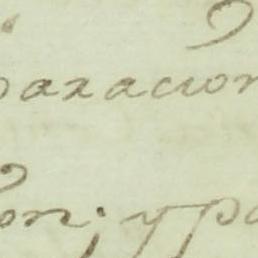 axacion
on; y pa